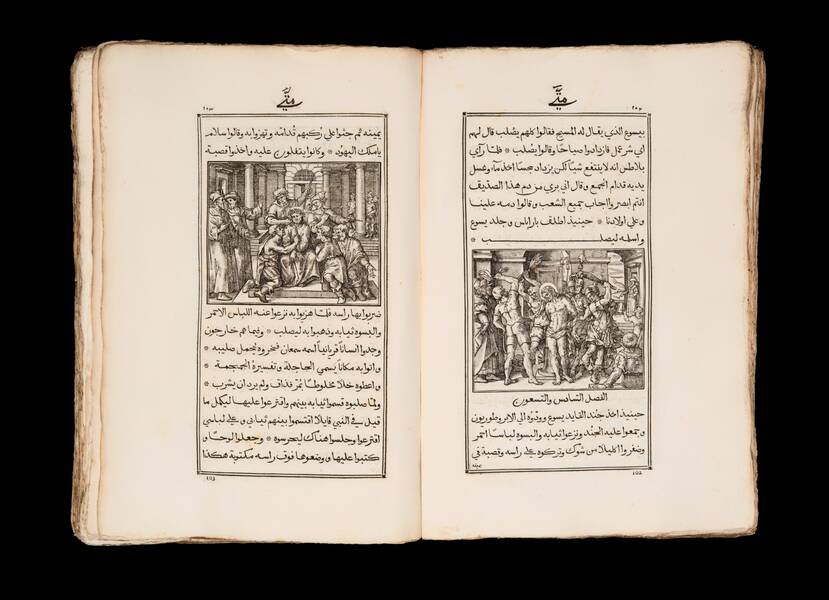 متى
يسوع الذي يقال له المسيح فقالوا كلهم يصلب قال لهم
اي شر عمل فازدادوا صياحا وقالوا يصلب * فلما راي
بلاطس انه لا ينتفع شيا لكن يزداد سجسا اخذ ماء وغسل
يديه قدام الجمع و قال اني بري من دم هذا الصديق
انتم ابصروا اجاب جميع الشعب و قالوا دمه علينا
و علي اولادنا * حينيذ اطلق باراباس و جلد يسوع
و اسلمه ليصلب *
الفصل السادس والتسعون
حينيذ اخذ جند القايد يسوع و ودوه الي الابروطوريون
و جمعوا عليه الجند و نزعوا ثيابه و البسوه لباسا احمر
و ضفروا اكليلا من شوك و تركوه علي راسه و قصبة في
يمينه
متى
يمينه ثم جثوا علي ركبهم قدامه و تهزوا به وقالوا سلام
يا ملك اليهود * وكانوا يتفلون عليه و اخذوا قصبة
ضربوا بها راسه فلما هزوا به نزعوا عنه اللباس الاحمر
والبسوه ثيابه و ذهبوا به ليصلب * و فيما هم خارجون
وجدوا انسانا قريانيا اسمه سمعان فسخروه ليحمل صليبه *
و اتوا به مكانا يسمي الجاجلة و تفسيره الجمجمة *
و اعطوه خلا مخلوطا بمر فذاق و لم يرد ان يشرب *
ولما صلبوه قسموا ثيابه بينهم واقترعوا عليها ليكمل ما
قيل في النبي قايلا اقتسموا بينهم ثيابي و علي لباسي
اقترعوا وجلسوا هناك ليحرسوه * وجعلوا لوحا و
كتبوا عليها و وضعوها فوق راسه مكتوبة هكذا